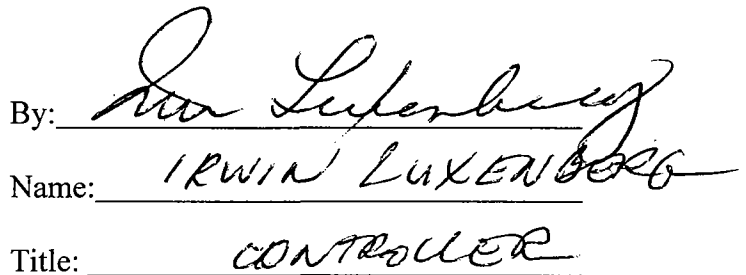 By: Irwin Luxenberg
Name: IRWIN LUXENBERG
Title: CONTROLLER